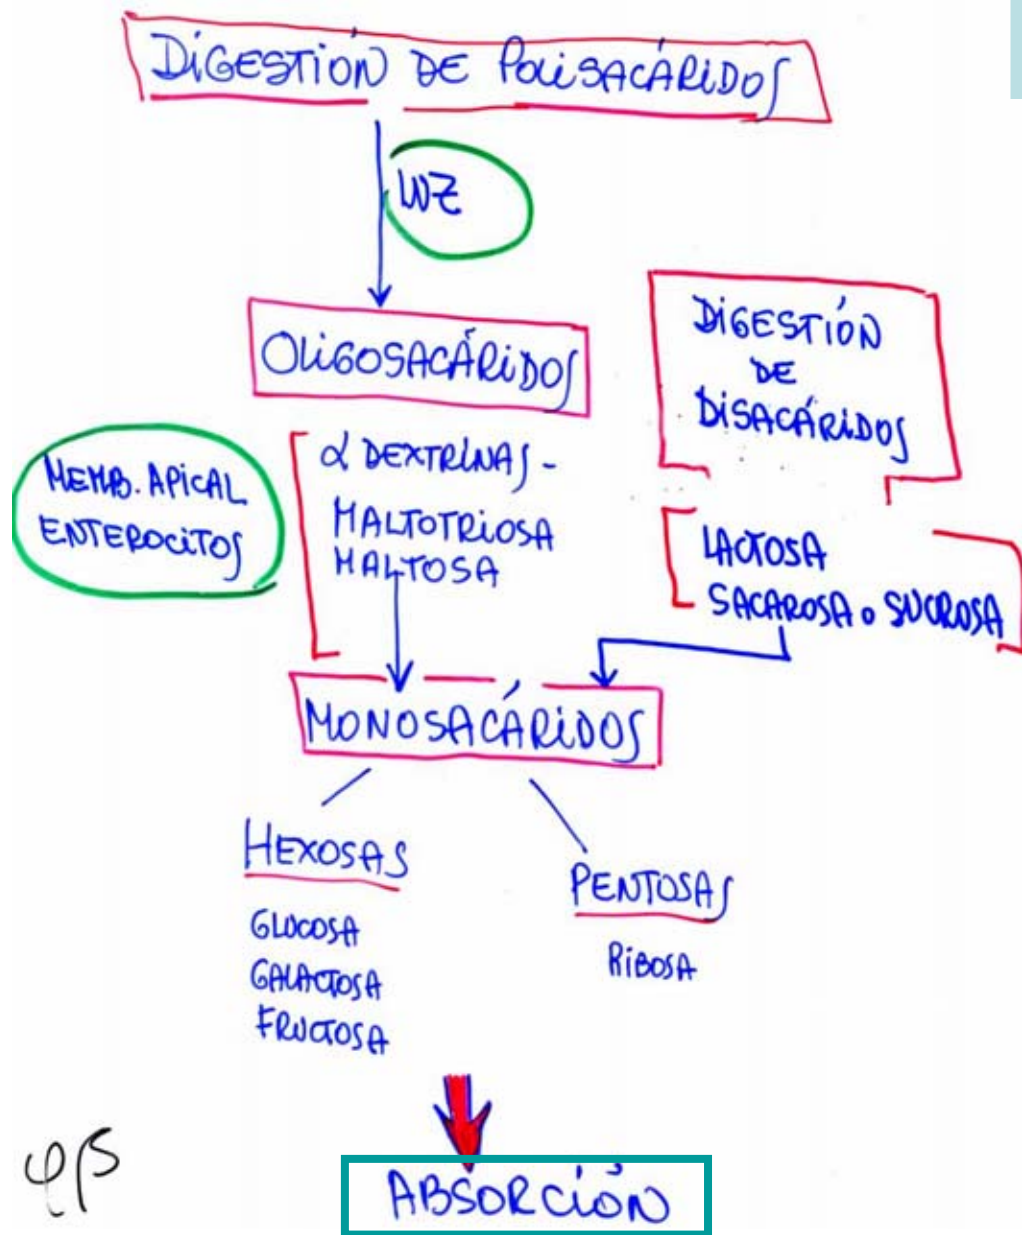 DIGESTIÓN DE POLISACÁRIDOS
LUZ
OLIGOSACÁRIDOS
DIGESTIÓN
DE
DISACÁRIDOS
MEMB. APICAL
ENTEROCITOS
α DEXTRINAS -
MALTOTRIOSA
MALTOSA
LACTOSA
SACAROSA o SUCROSA
MONOSACÁRIDOS
HEXOSAS
GLUCOSA
GALACTOSA
FRUCTOSA
PENTOSAS
RIBOSA
ABSORCIÓN